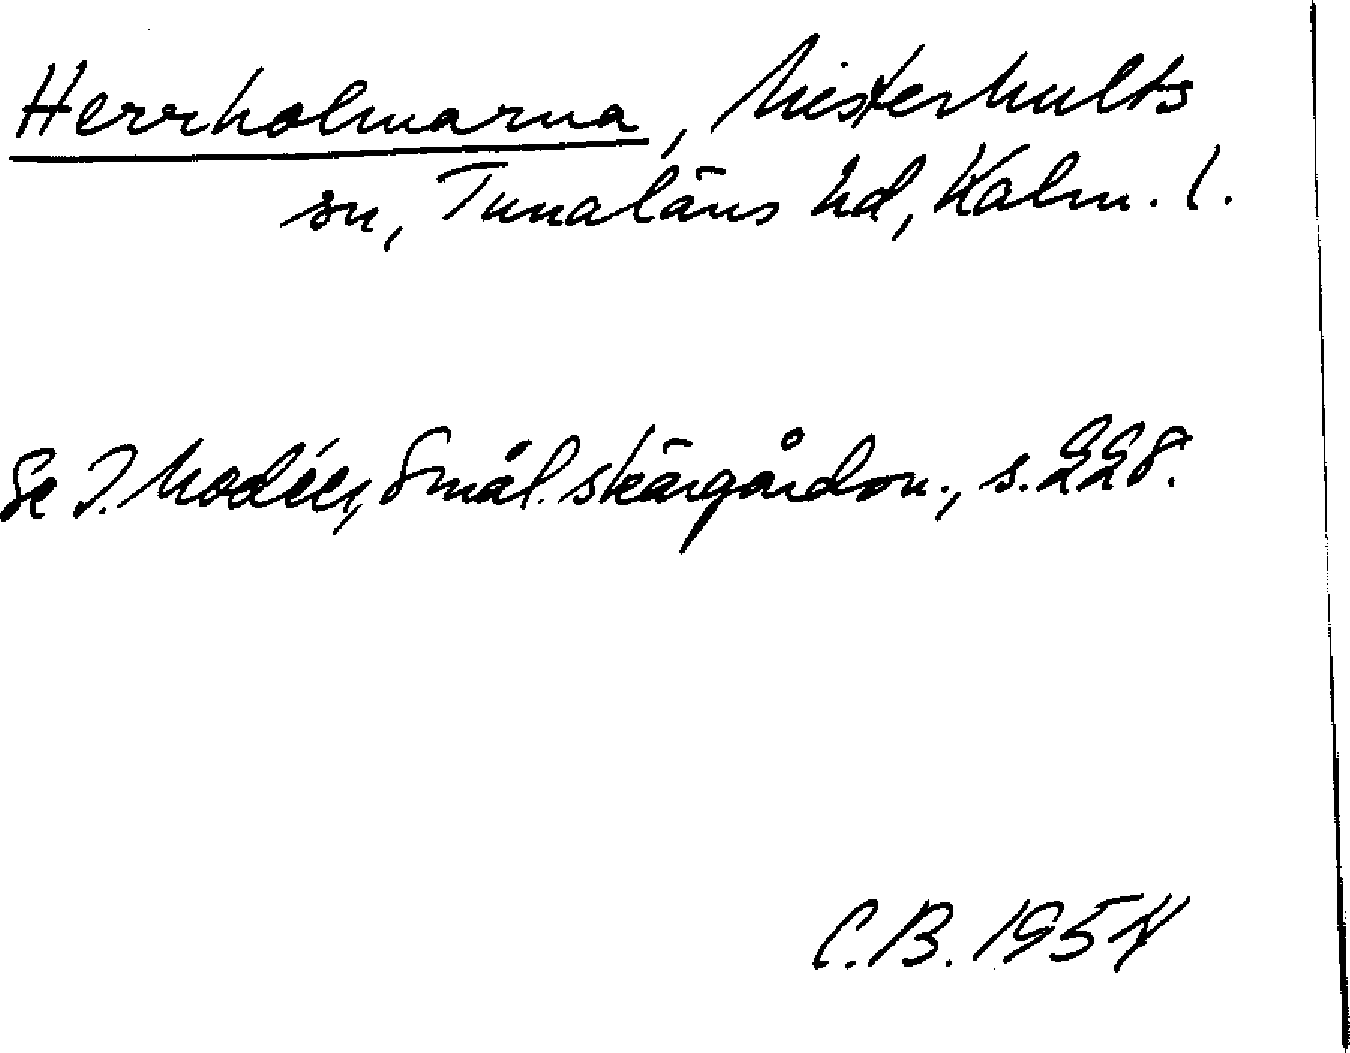 Herrholmarna, Misterhults
sn, Tunaläns hd, Kalm. l.
Se I. Modéer, Smål. skärgårdsn., s. 228.
C.B. 1954